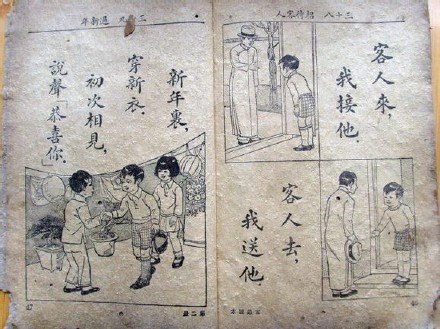 三十八 招待客人
客人來，
我接他．
客人去，
我送他．
過新年
新年裏，
穿新衣．
初次相見，
說聲「恭喜你．」